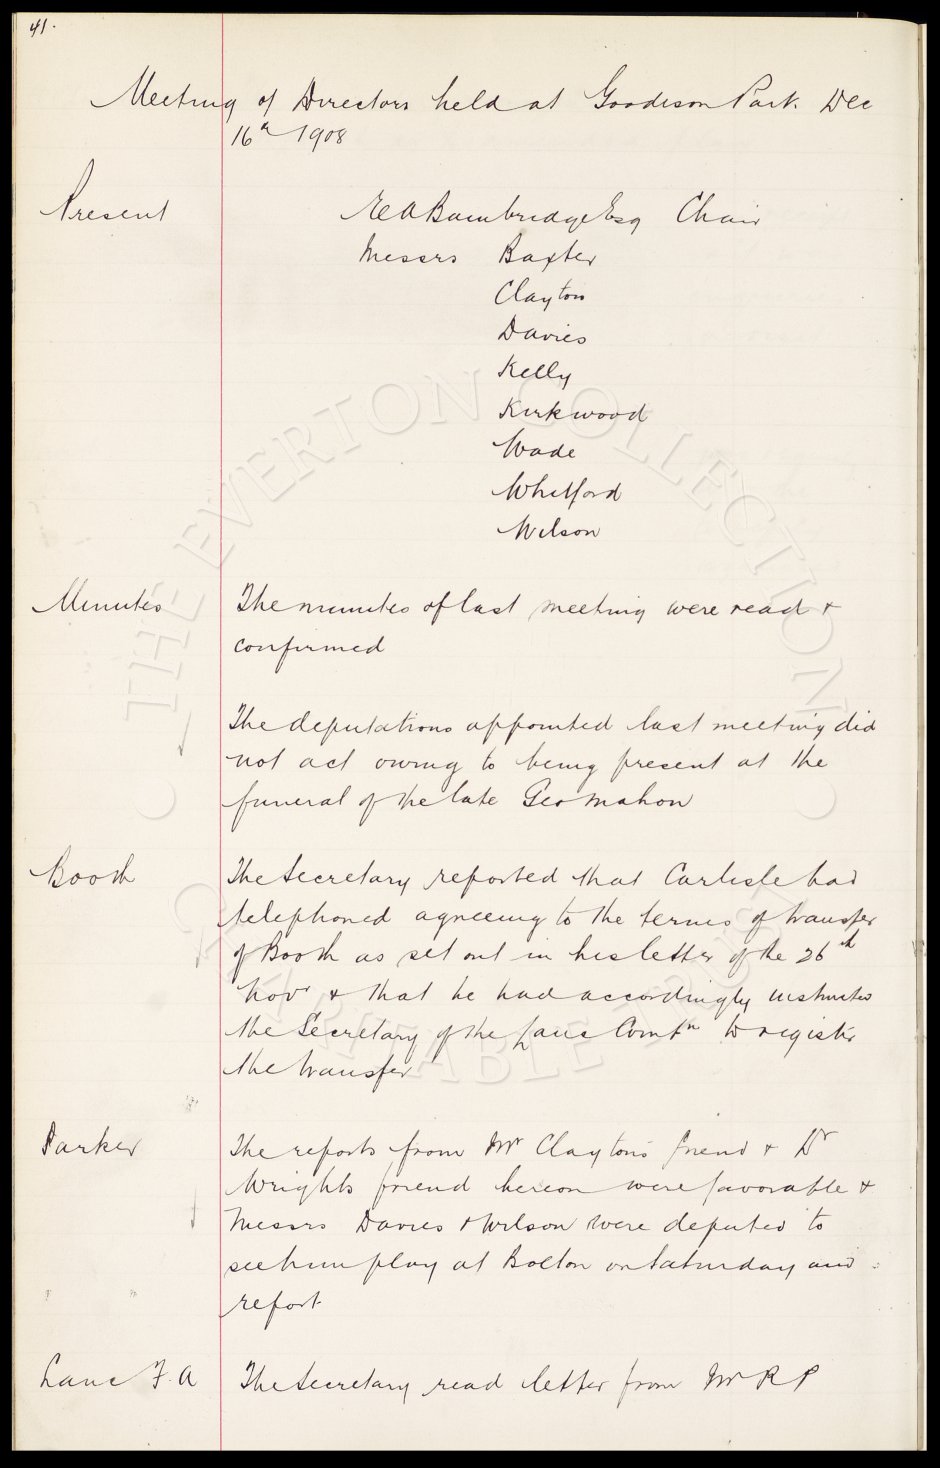 41.
Meeting of Directors held at Goodison Park. Dec
16th 1908
Present
E A Bainbridge Esq Chair
Messrs Baxter
Clayton
Davies
Kelly
Kirkwood
Wade
Whitford
Wilson
Minutes
The minutes of last meeting were read &
confirmed
The deputations appointed last meeting did
not act owing to being present at the
funeral of the late Geo Mahon
Booth
The Secretary reported that Carlisle had
telephoned agreeing to the terms of transfer
of Booth as set out in his letter of the 26th
Novr & that he had accordingly instructed
the Secretary of the Lanc Combn to register
the transfer
Parker
The reports from Mr Clayton's friend & Dr
Wrights friend hereon were favorable &
Messrs Davies & Wilson were deputed to
see him play at Bolton on Saturday and
report.
Lanc F. A
The Secretary read letter from Mr R P
© THE EVERTON COLLECTION
CHARITABLE TRUST